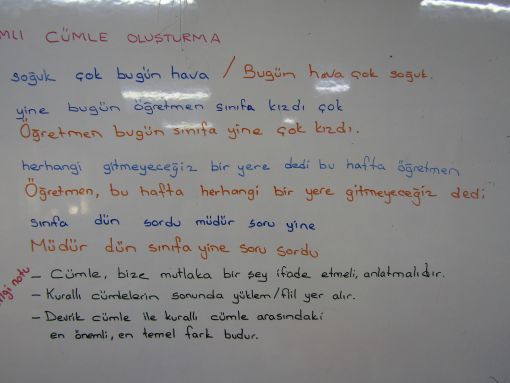 MLI CÜMLE OLUŞTURMA
soğuk çok bugün hava / Bugün hava çok soğuk.
yine bugün öğretmen sınıfa kızdı çok
Öğretmen bugün sınıfa yine çok kızdı.
herhangi gitmeyeceğiz bir yere dedi bu hafta öğretmen
Öğretmen, bu hafta herhangi bir yere gitmeyeceğiz dedi
sınıfa dün sordu müdür soru yine
Müdür dün sınıfa yine soru sordu
ilgi notu
- Cümle, bize mutlaka bir şey ifade etmeli, anlatmalıdır.
- Kurallı cümlelerin sonunda yüklem/fiil yer alır.
- Devrik cümle ile kurallı cümle arasındaki
en önemli, en temel fark budur.